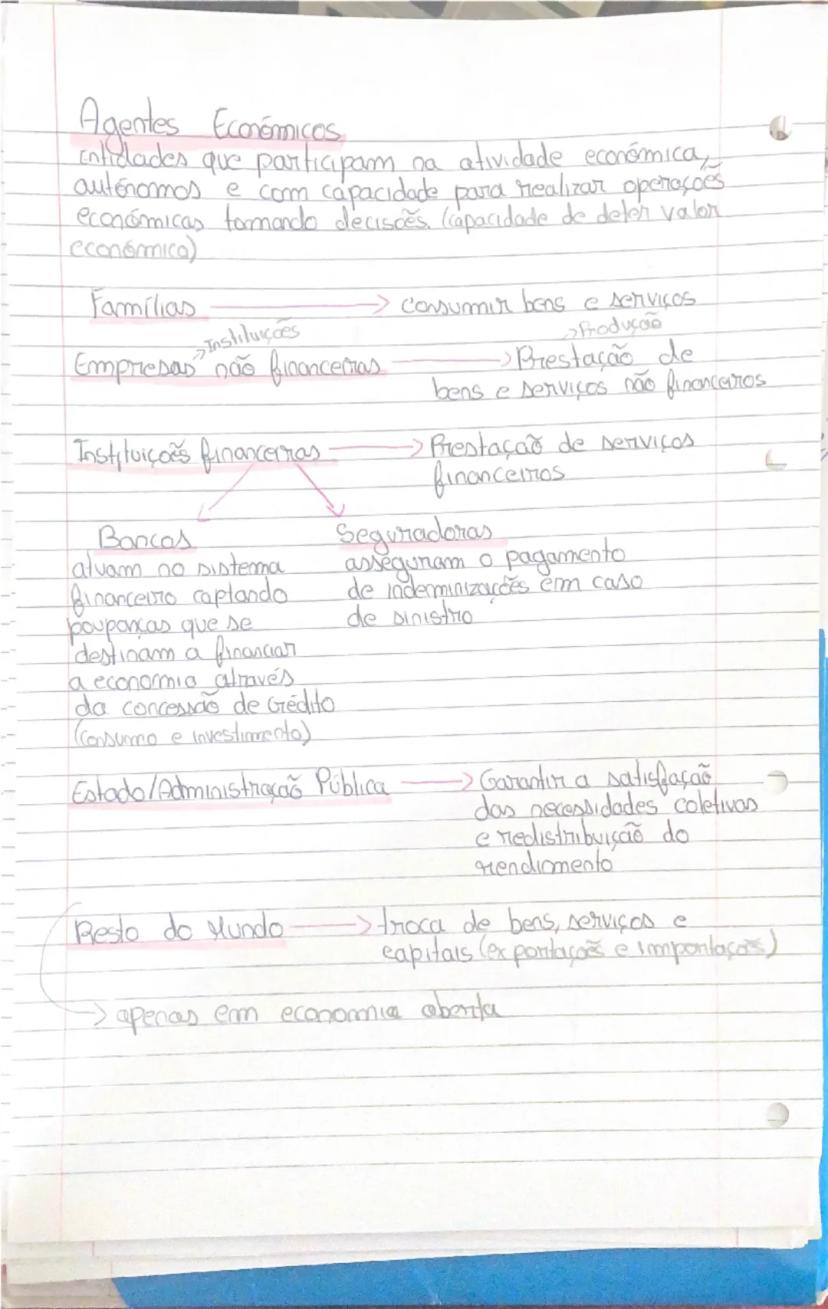 Agentes Económicos
Entidades que participam na atividade económica,
autónomos e com capacidade para realizar operações
económicas tomando decisões. (capacidade de deter valor
económico)
Famílias → consumir bens e serviços
→ Instituições
→ Produção
Empresas não financeiras → Prestação de
bens e serviços não financeiros
Instituições financeiras → Prestação de serviços
financeiros
Bancos
atuam no sistema
financeiro captando
poupanças que se
destinam a financiar
a economia através
da concessão de crédito
(consumo e investimento)
Seguradoras
asseguram o pagamento
de indeminizações em caso
de sinistro
Estado/Administração Pública → Garantir a satisfação
das necessidades coletivas
e redistribuição do
rendimento
Resto do Mundo → troca de bens, serviços e
capitais (exportações e importações)
→ apenas em economia aberta